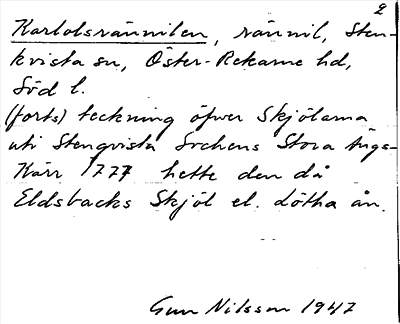 2
Karlolsrännilen, rännil, Sten-
kvista sn, Öster-Rekarne hd,
Söd l.
(forts) teckning öfwer Skjölarna
uti Stenqvista Sochens Stora Ängs-
Kärr 1777 hette den då
Eldsbacks Skjöl el. dötha ån.
Gun Nilsson 1947